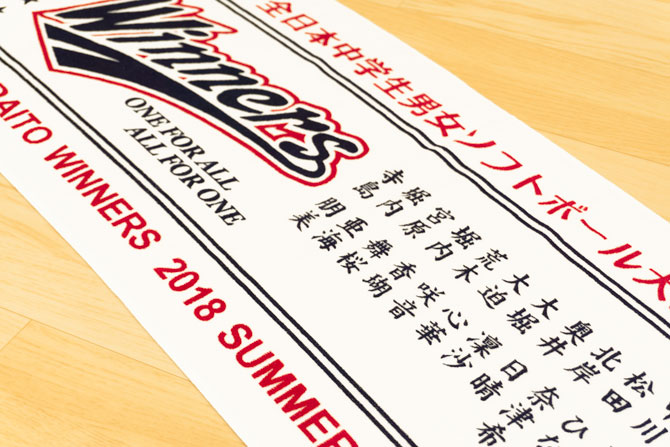 全日本中学生男女ソフトボール大
Winners
ONE FOR ALL
ALL FOR ONE
寺島朋美
堀内亜海
宮原舞桜
堀内香瑚
荒木咲音
大迫心華
大堀凜沙
奥井日晴
北岸奈津希
DAITO WINNERS 2018 SUMMER